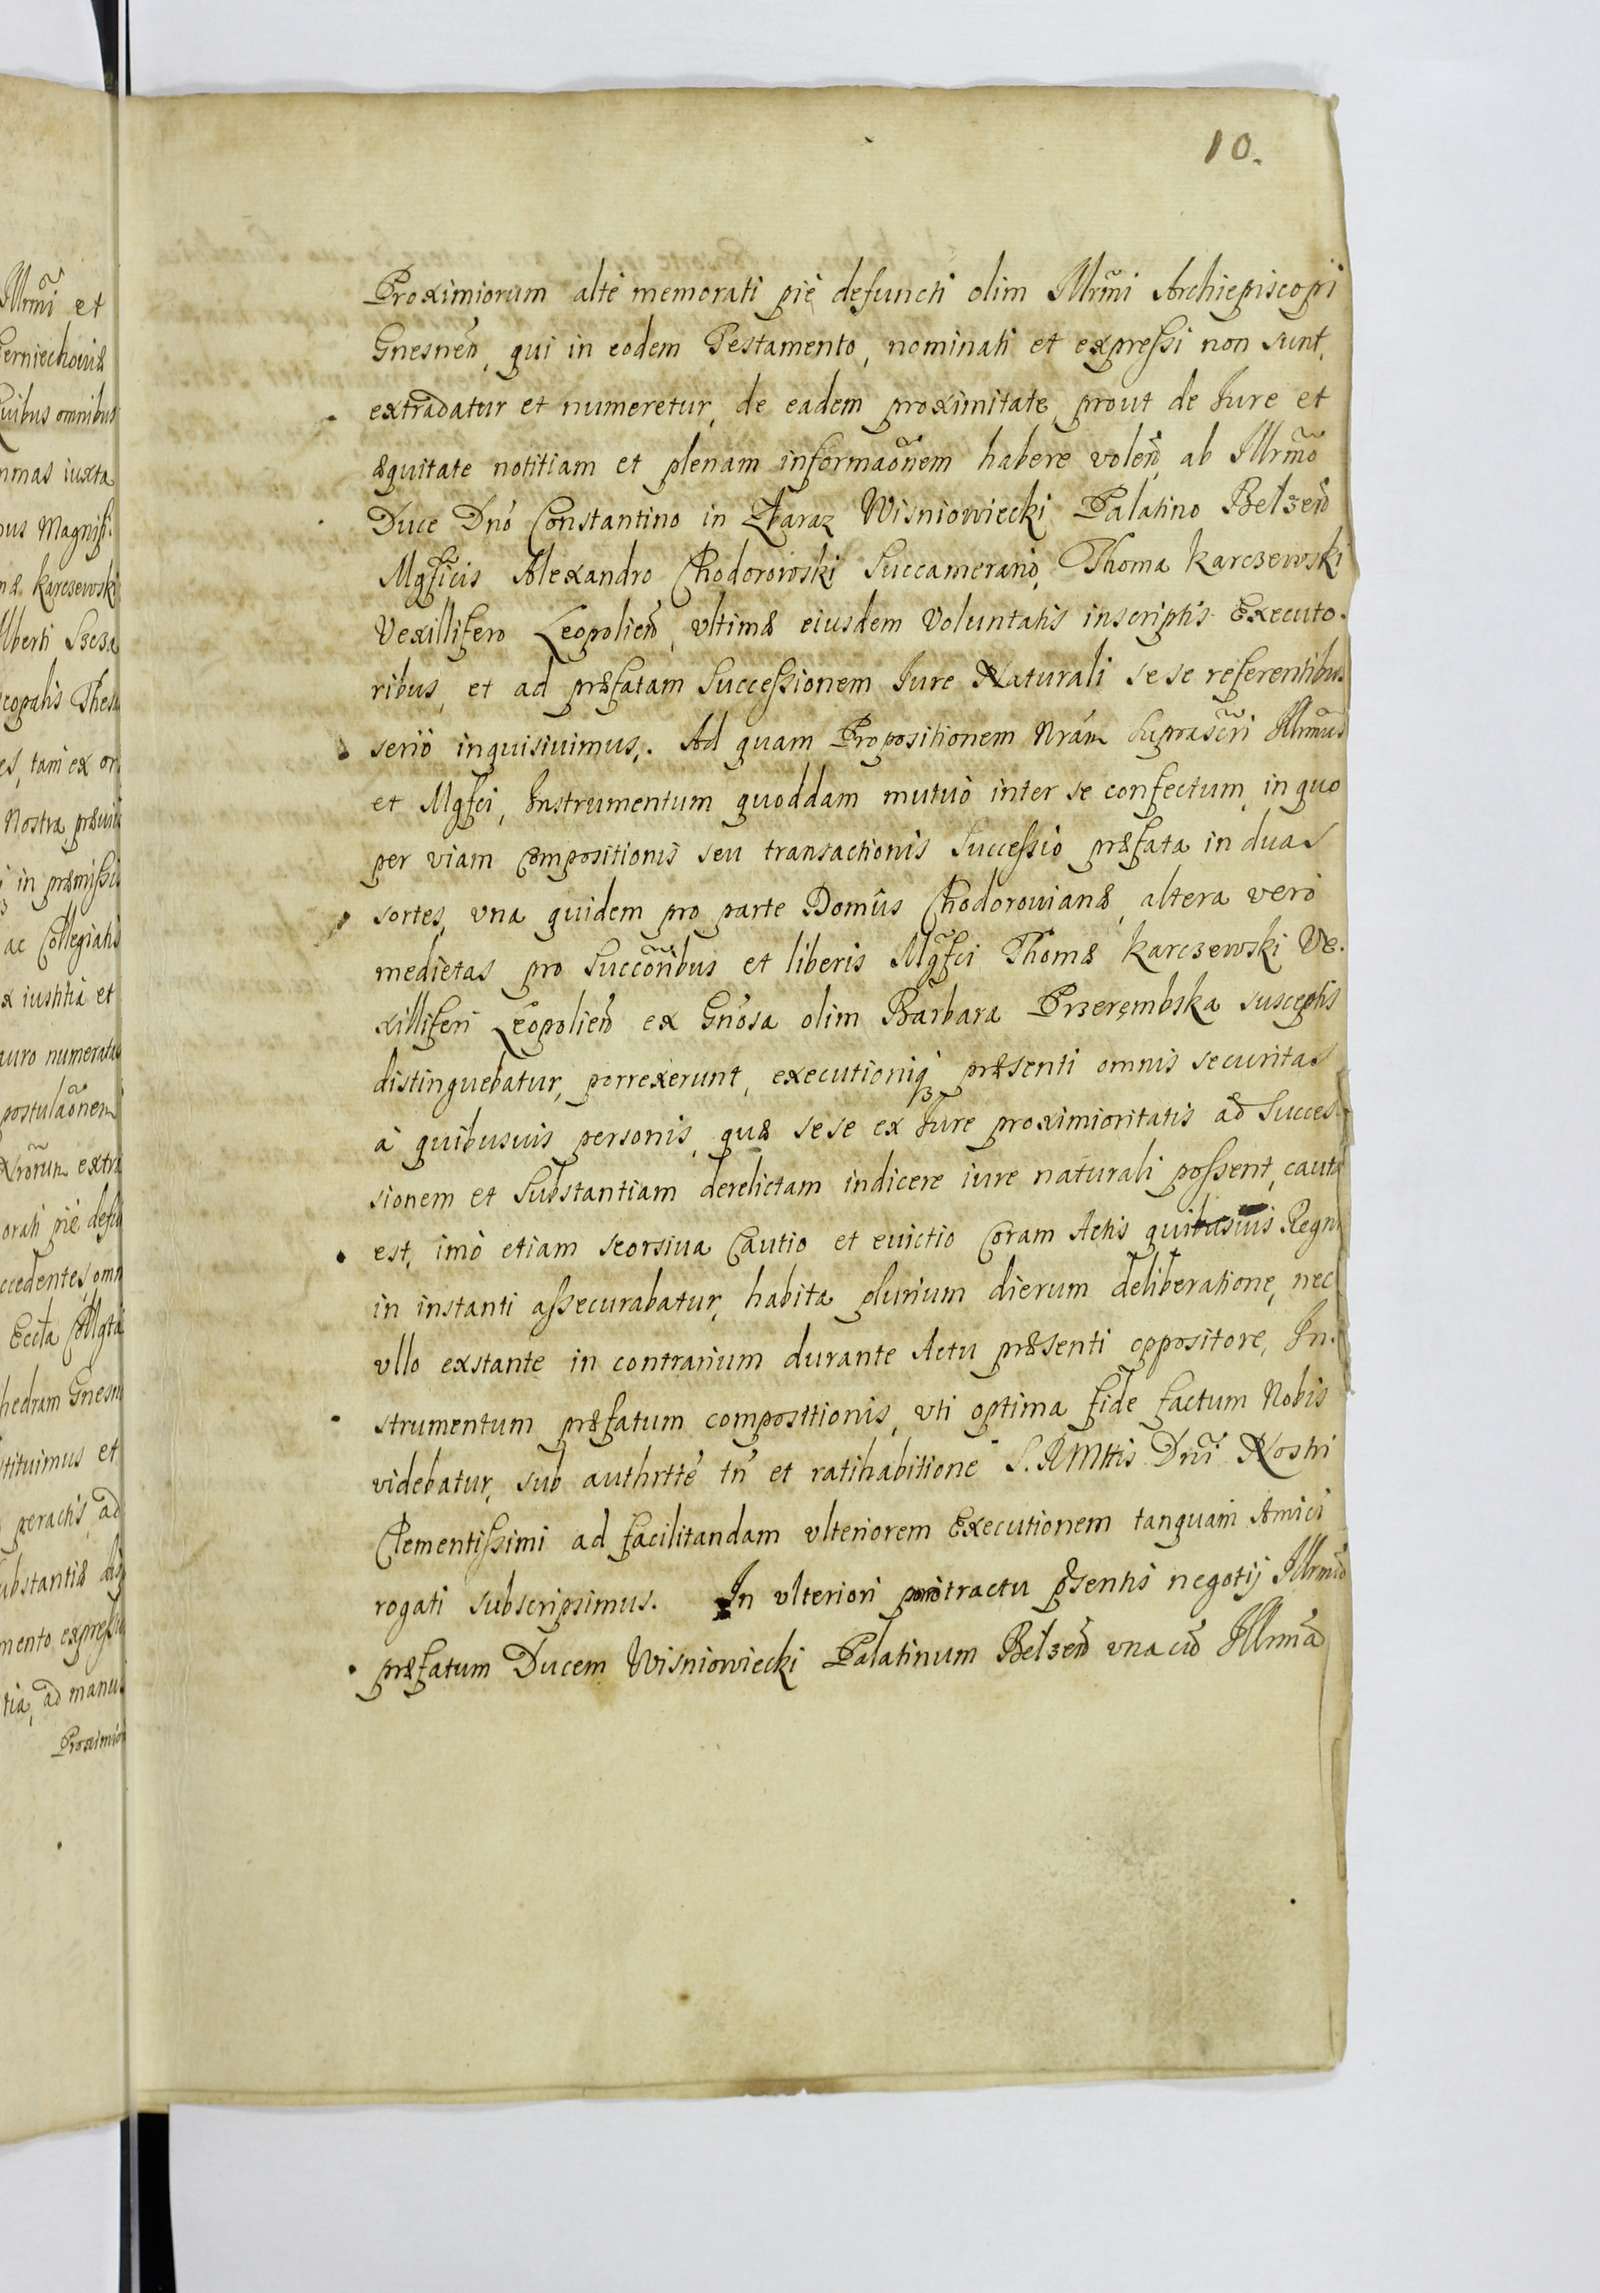 10.
Proximiorum altè memorati piè defuncti olim Illrm̃i Archiepiscopi
Gnesneñ, qui in eodem Testamento, nominati et expressi non sunt,
extradatur et numeretur, de eadem proximitate, prout de Iure et
æquitate notitiam et plenam informaõnem habere voleñ, ab Illrm̃o
Duce Dnõ Constantino in Zbaraz Wisniowiecki Palatino Belzeñ
Mgficis Alexandro Chodorowski Succamerario, Thoma Karczewski
Vexillifero Leopolieñ, vltimæ eiusdem Voluntatis inscriptis Executo.
ribus, et ad præfatam Successionem Iure Naturali sese referentibus
seriò inquisiuimus. Ad quam Propositionem Nrãm suprascr̃i Illrm̃us
et Mgfci, Instrumentum quoddam mutuò inter se confectum, in quo
per viam compositionis seu transactionis Successio præfata in duas
sortes, vna quidem pro parte Domûs Chodorouianæ, altera verò
medietas pro Succõribus et liberis Mgfci Thomæ Karczewski Ve.
xilliferi Leopolieñ ex Gnõsa olim Barbara Przerembska susceptis
distinguebatur, porrexerunt, executioniq3 præsenti omnis securitas
à quibusuis personis, quæ sese ex Iure proximioritatis ad Succes
sionem et Substantiam derelictam indicere iure naturali possent, cauta
est, imò etiam seorsiua Cautio et euictio Coram Actis quibusuis Regni
in instanti assecurabatur, habita plurium dierum deliberatione, nec
vllo exstante in contrarium durante Actu præsenti oppositore, In.
strumentum præfatum compositionis, vti optima fide factum Nobis
videbatur, sub authrtte tñ et ratihabitione S. R Mttis Dnĩ Nostri
Clementissimi ad facilitandam vlteriorem Executionem tanquam Amici
rogati subscripsimus. In vlteriori tractu p̃sentis negotij Illrm̃
præfatum Ducem Wisniowiecki Palatinum Belzeñ vna cũ Illrm̃a